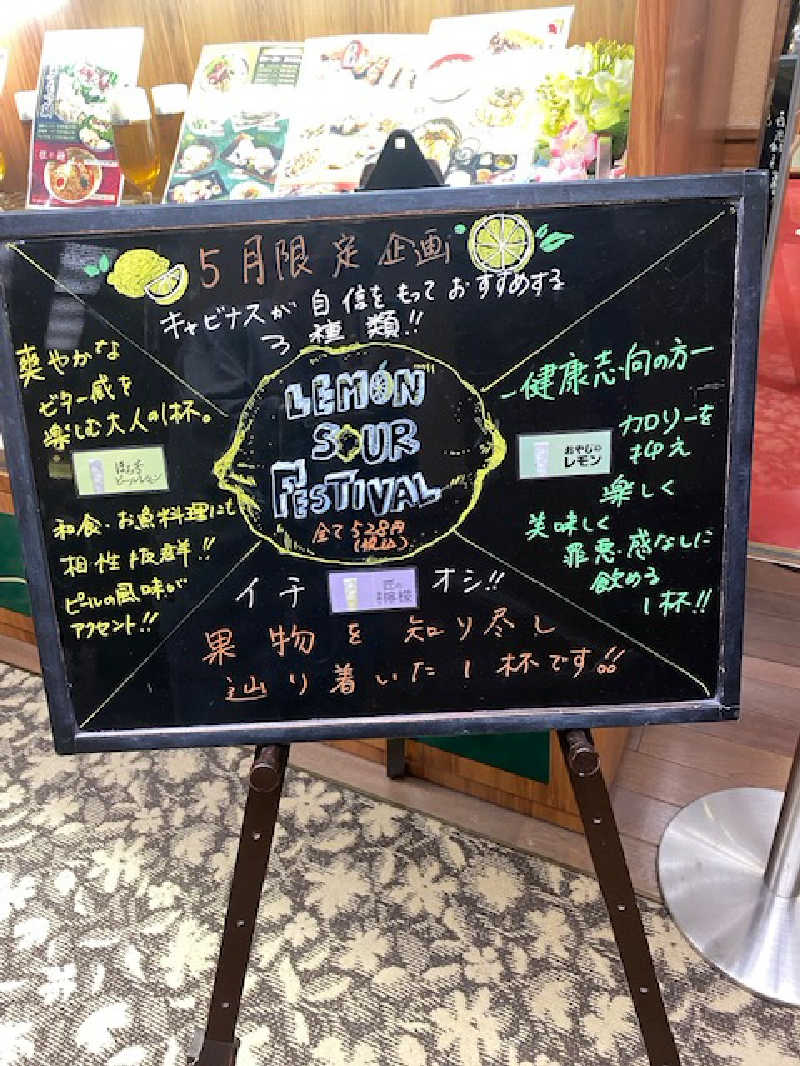 5月限定企画
キャビナスが自信をもっておすすめする
3種類!!
爽やかな
ビター感を
楽しむ大人の1杯。
ビールレモン
和食・お魚料理にも
相性抜群!!
ビールの風味が
アクセント!!
LEMON
SOUR
FESTIVAL
全て528円
(税込)
健康志向の方
カロリーを
抑え
おやじの
レモン
楽しく
美味しく
罪悪感なしに
飲める
1杯!!
イチ オシ!!
匠の
檸檬
果物を知り尽し
辿り着いた1杯です!!